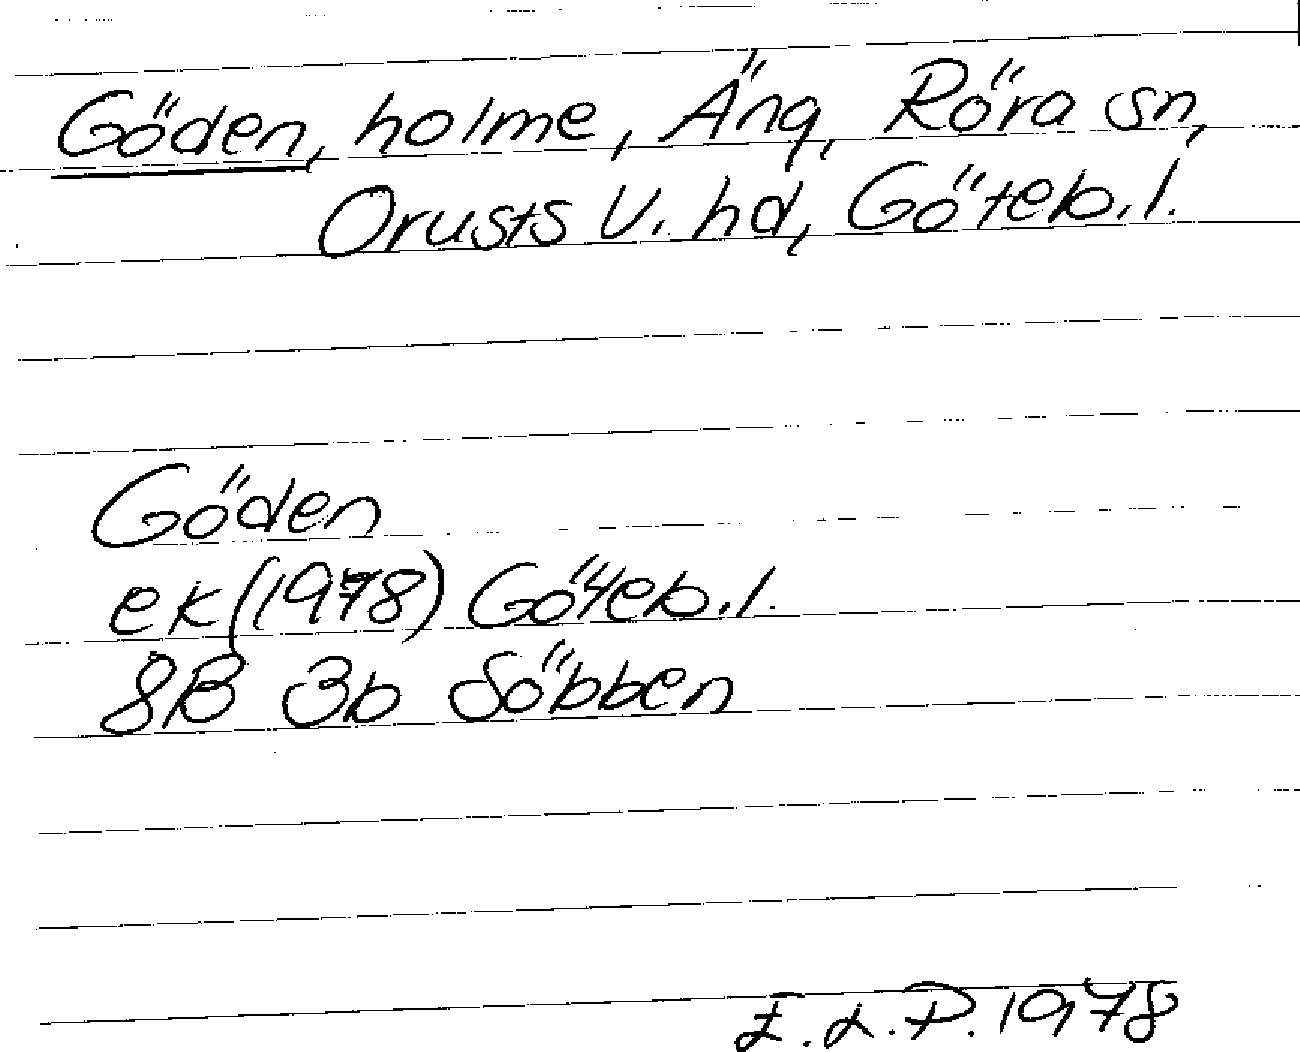 Göden, holme, Äng, Röra sn,
Orusts V. hd, Göteb.l.
Göden
ek (1978) Göteb.l.
8B 3b Söbben
E.L.P. 1978